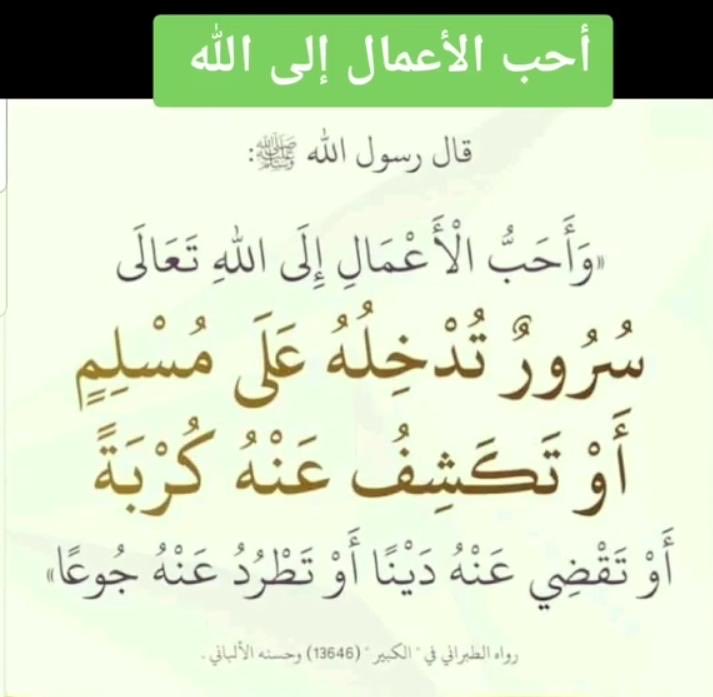 أحب الأعمال إلى الله
قال رسول الله ﷺ:
«وَأَحَبُّ الْأَعْمَالِ إِلَى اللهِ تَعَالَى
سُرُورٌ تُدْخِلُهُ عَلَى مُسْلِمٍ
أَوْ تَكَشِفُ عَنْهُ كُرْبَةً
أَوْ تَقْضِي عَنْهُ دَيْنًا أَوْ تَطْرُدُ عَنْهُ جُوعًا»
رواه الطبراني في "الكبير" (13646) وحسنه الألباني.